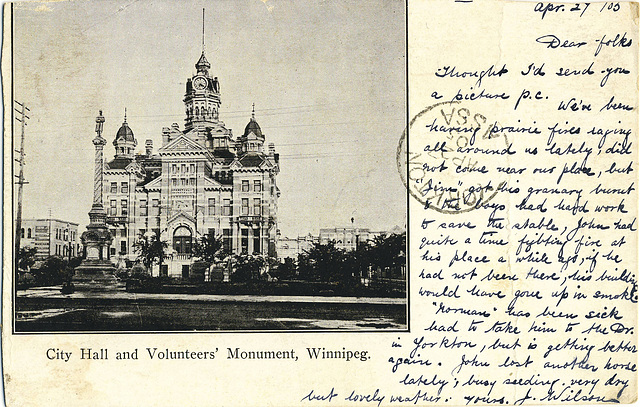 Apr. 27 /05
Dear folks
Thought I'd send you
a picture p.c.
We've been
having prairie fires raging
all around us lately, did
not come near our place, but
"Jim" got his granary burnt
& the boys had hard work
to save the stable, John had
quite a time fighting fire at
his place a while ago, if he
had not been there, his buildings
would have gone up in smoke
"Norman" has been sick
had to take him to the Dr.
in Yorkton, but is getting better
again. John lost another horse
lately; busy seeding. very dry
but lovely weather. yours, J. Wilson
YORKTON
ASSA
AP 27
City Hall and Volunteers' Monument, Winnipeg.